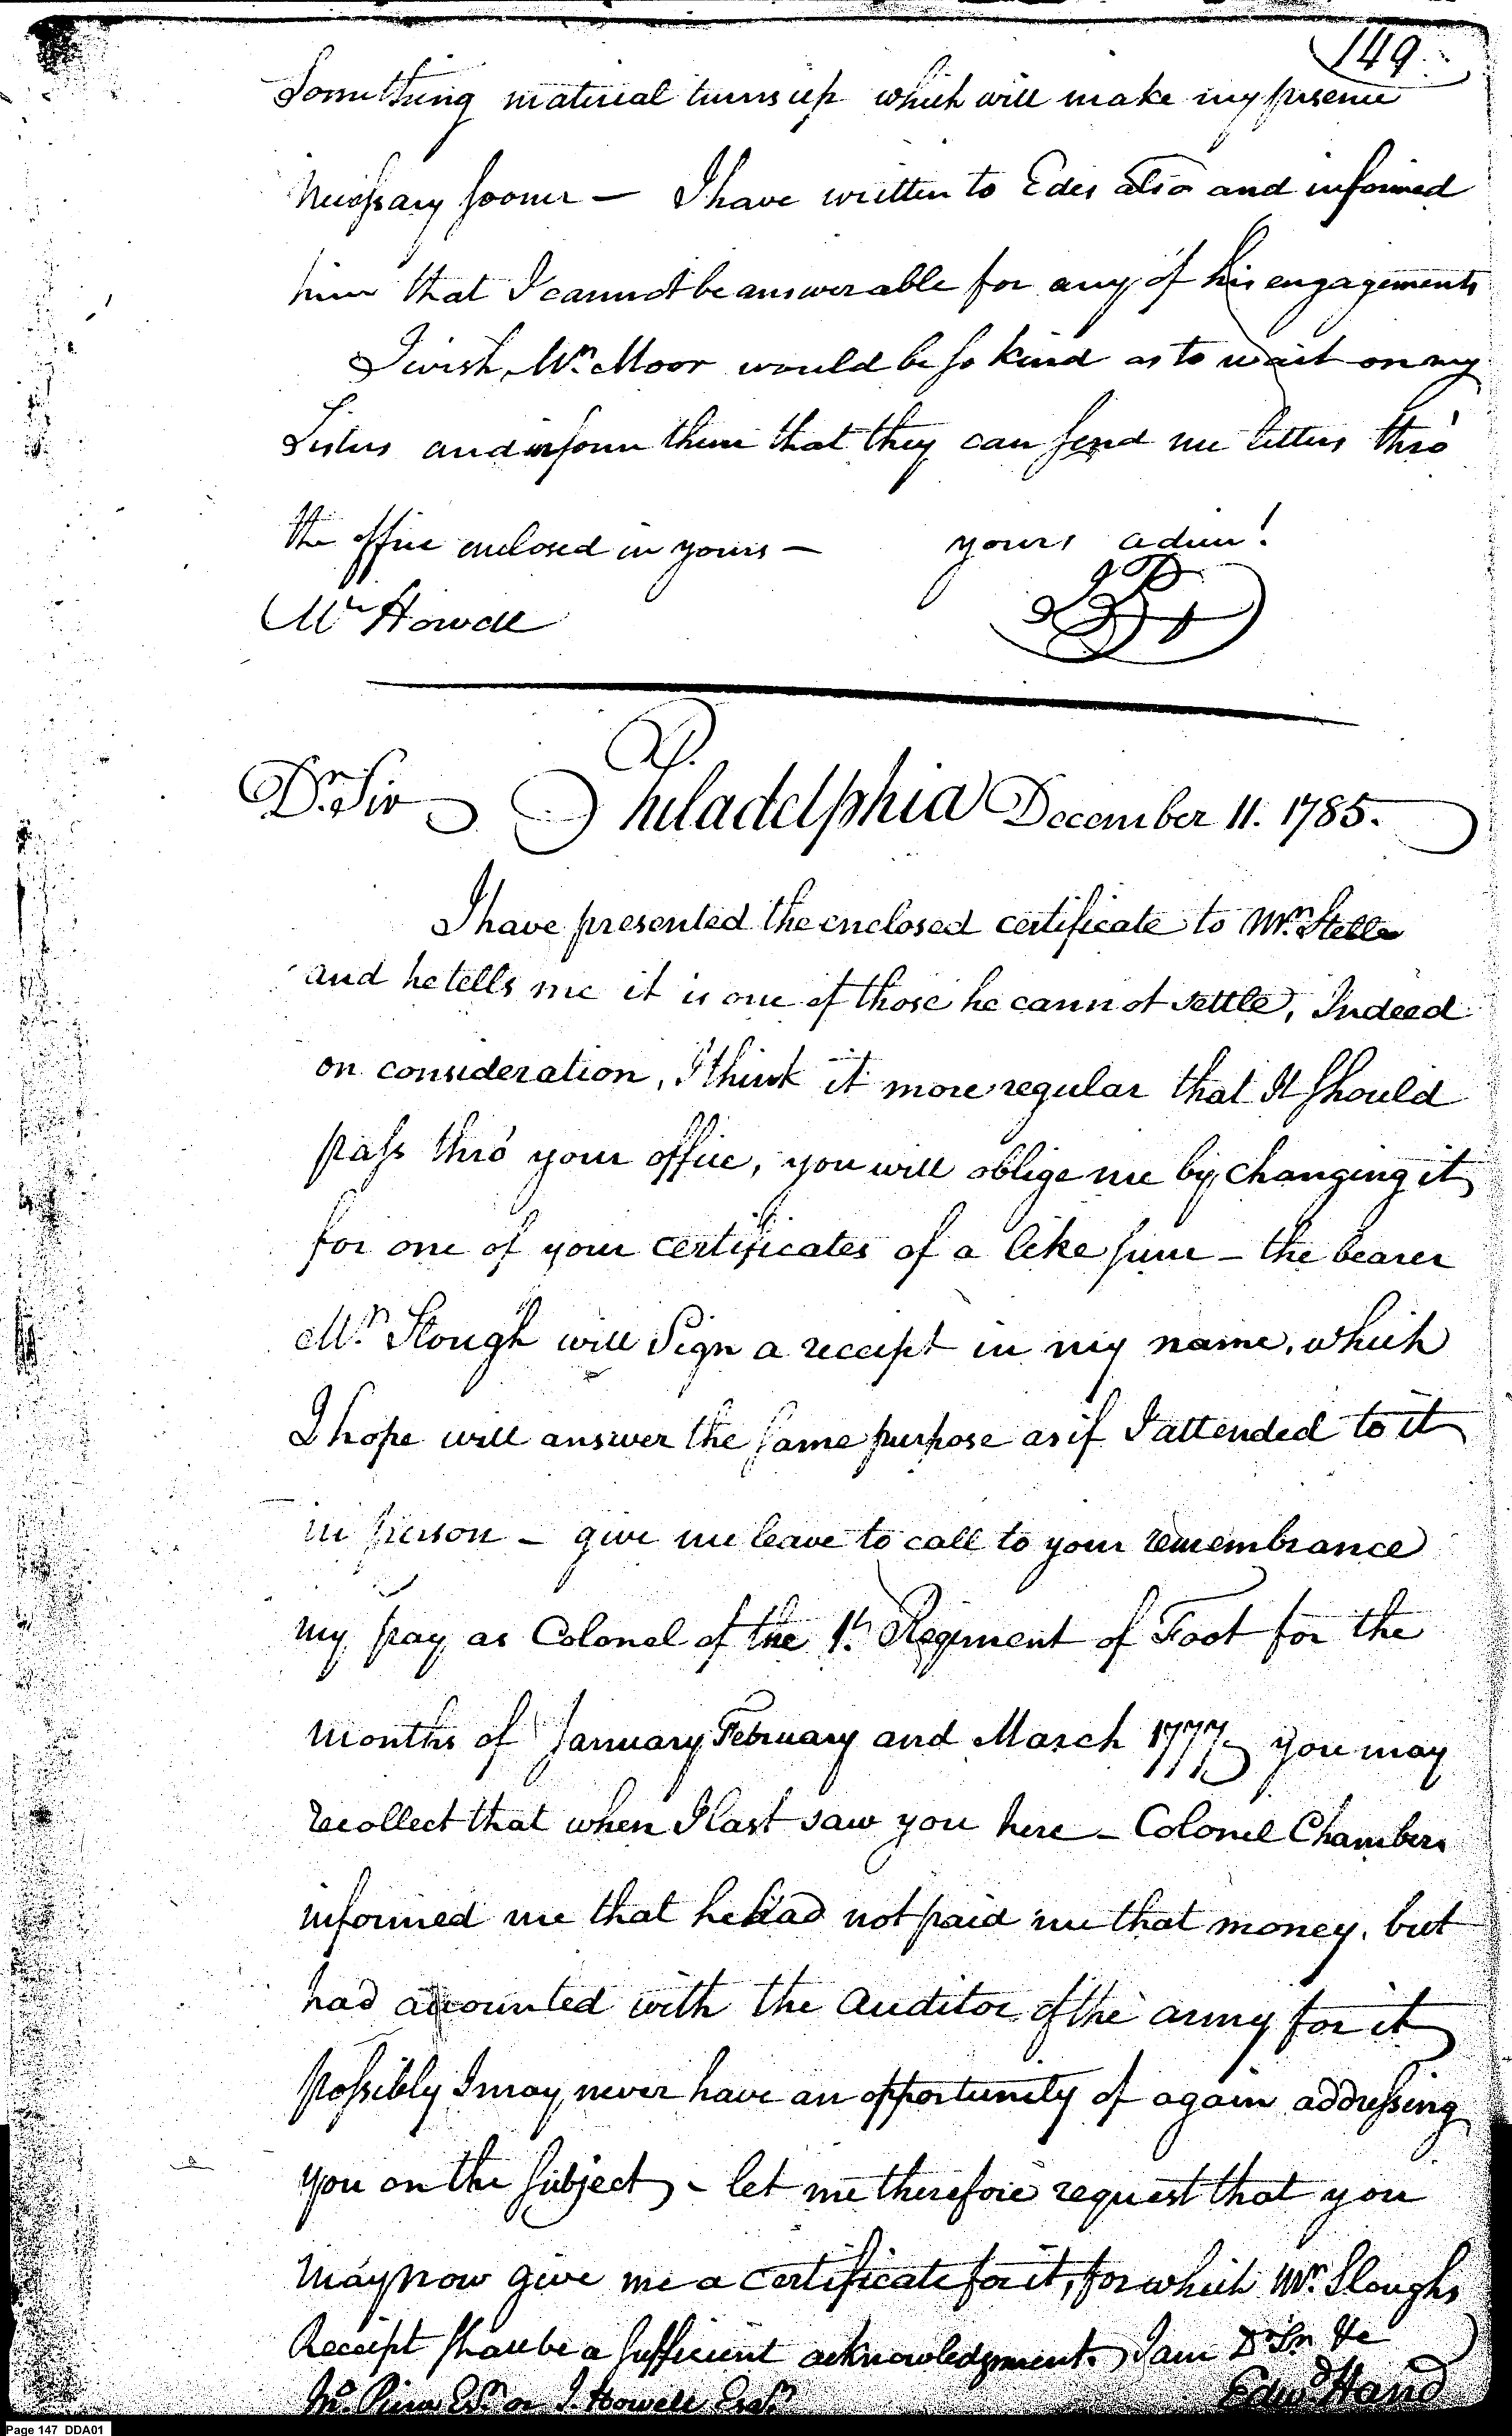 149
Something material turns up which will make my presence
necessary sooner — I have written to Edes also and informed
him that I cannot be answerable for any of his engagements
I wish Mr. Moor would be so kind as to wait on my
Sisters and inform them that they can send me letters thro'
the office enclosed in yours — yours adieu!
Mr Howell
JP
Dr. Sir Philadelphia December 11. 1785.
I have presented the enclosed certificate to Mr. Stelle
and he tells me it is one of those he cannot settle, Indeed
on consideration, I think it more regular that It should
pass thro' your office, you will oblige me by changing it
for one of your certificates of a like sum — the bearer
Mr. Slough will Sign a receipt in my name, which
I hope will answer the same purpose as if I attended to it
in person — give me leave to call to your remembrance
my pay as Colonel of the 1st. Regiment of Foot for the
months of January February and March 1777 you may
recollect that when I last saw you here — Colonel Chambers
informed me that he had not paid me that money, but
had accounted with the Auditor of the army for it
possibly I may never have an opportunity of again addressing
you on the subject, – let me therefore request that you
may now give me a certificate for it, for which Mr. Sloughs
Receipt shall be a sufficient acknowledgment. I am Dr Sr. &c
Jno. Pierce Esqr. or J. Howell Esqr. Edwd. Hand
Page 147 DDA01